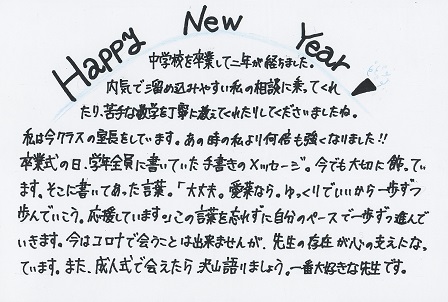 Happy New Year
中学校を卒業して二年が経ちました。
内気で溜め込みやすい私の相談に乗ってくれ
たり、苦手な数学を丁寧に教えてくれたりしてくださいましたね。
私は今クラスの室長をしています。あの時の私より何倍も強くなりました!!
卒業式の日、学年全員に書いていた手書きのメッセージ。今でも大切に飾ってい
ます。そこに書いてあった言葉。「大丈夫。愛菜なら。ゆっくりでいいから一歩ずつ
歩んでいこう。応援しています」この言葉を忘れずに自分のペースで一歩ずつ進んで
いきます。今はコロナで会うことは出来ませんが、先生の存在が心の支えにな
っています。また、成人式で会えたら沢山語りましょう。一番大好きな先生です。